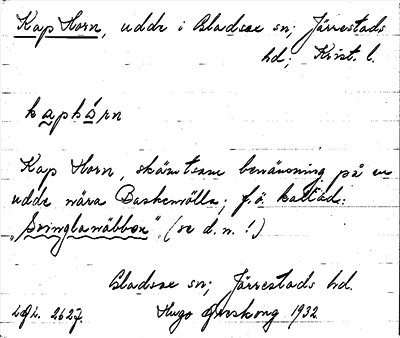 Kap Horn, udde i Gladsax sn; Järrestads
hd; Krist. l.
kaphórn
Kap Horn, skämtsam benämning på en
udde nära Baskemölla; f.ö. kallad:
"Svinglanäbben". (se d. n. !)
Gladsax sn; Järrestads hd.
2627. Hugo 1932